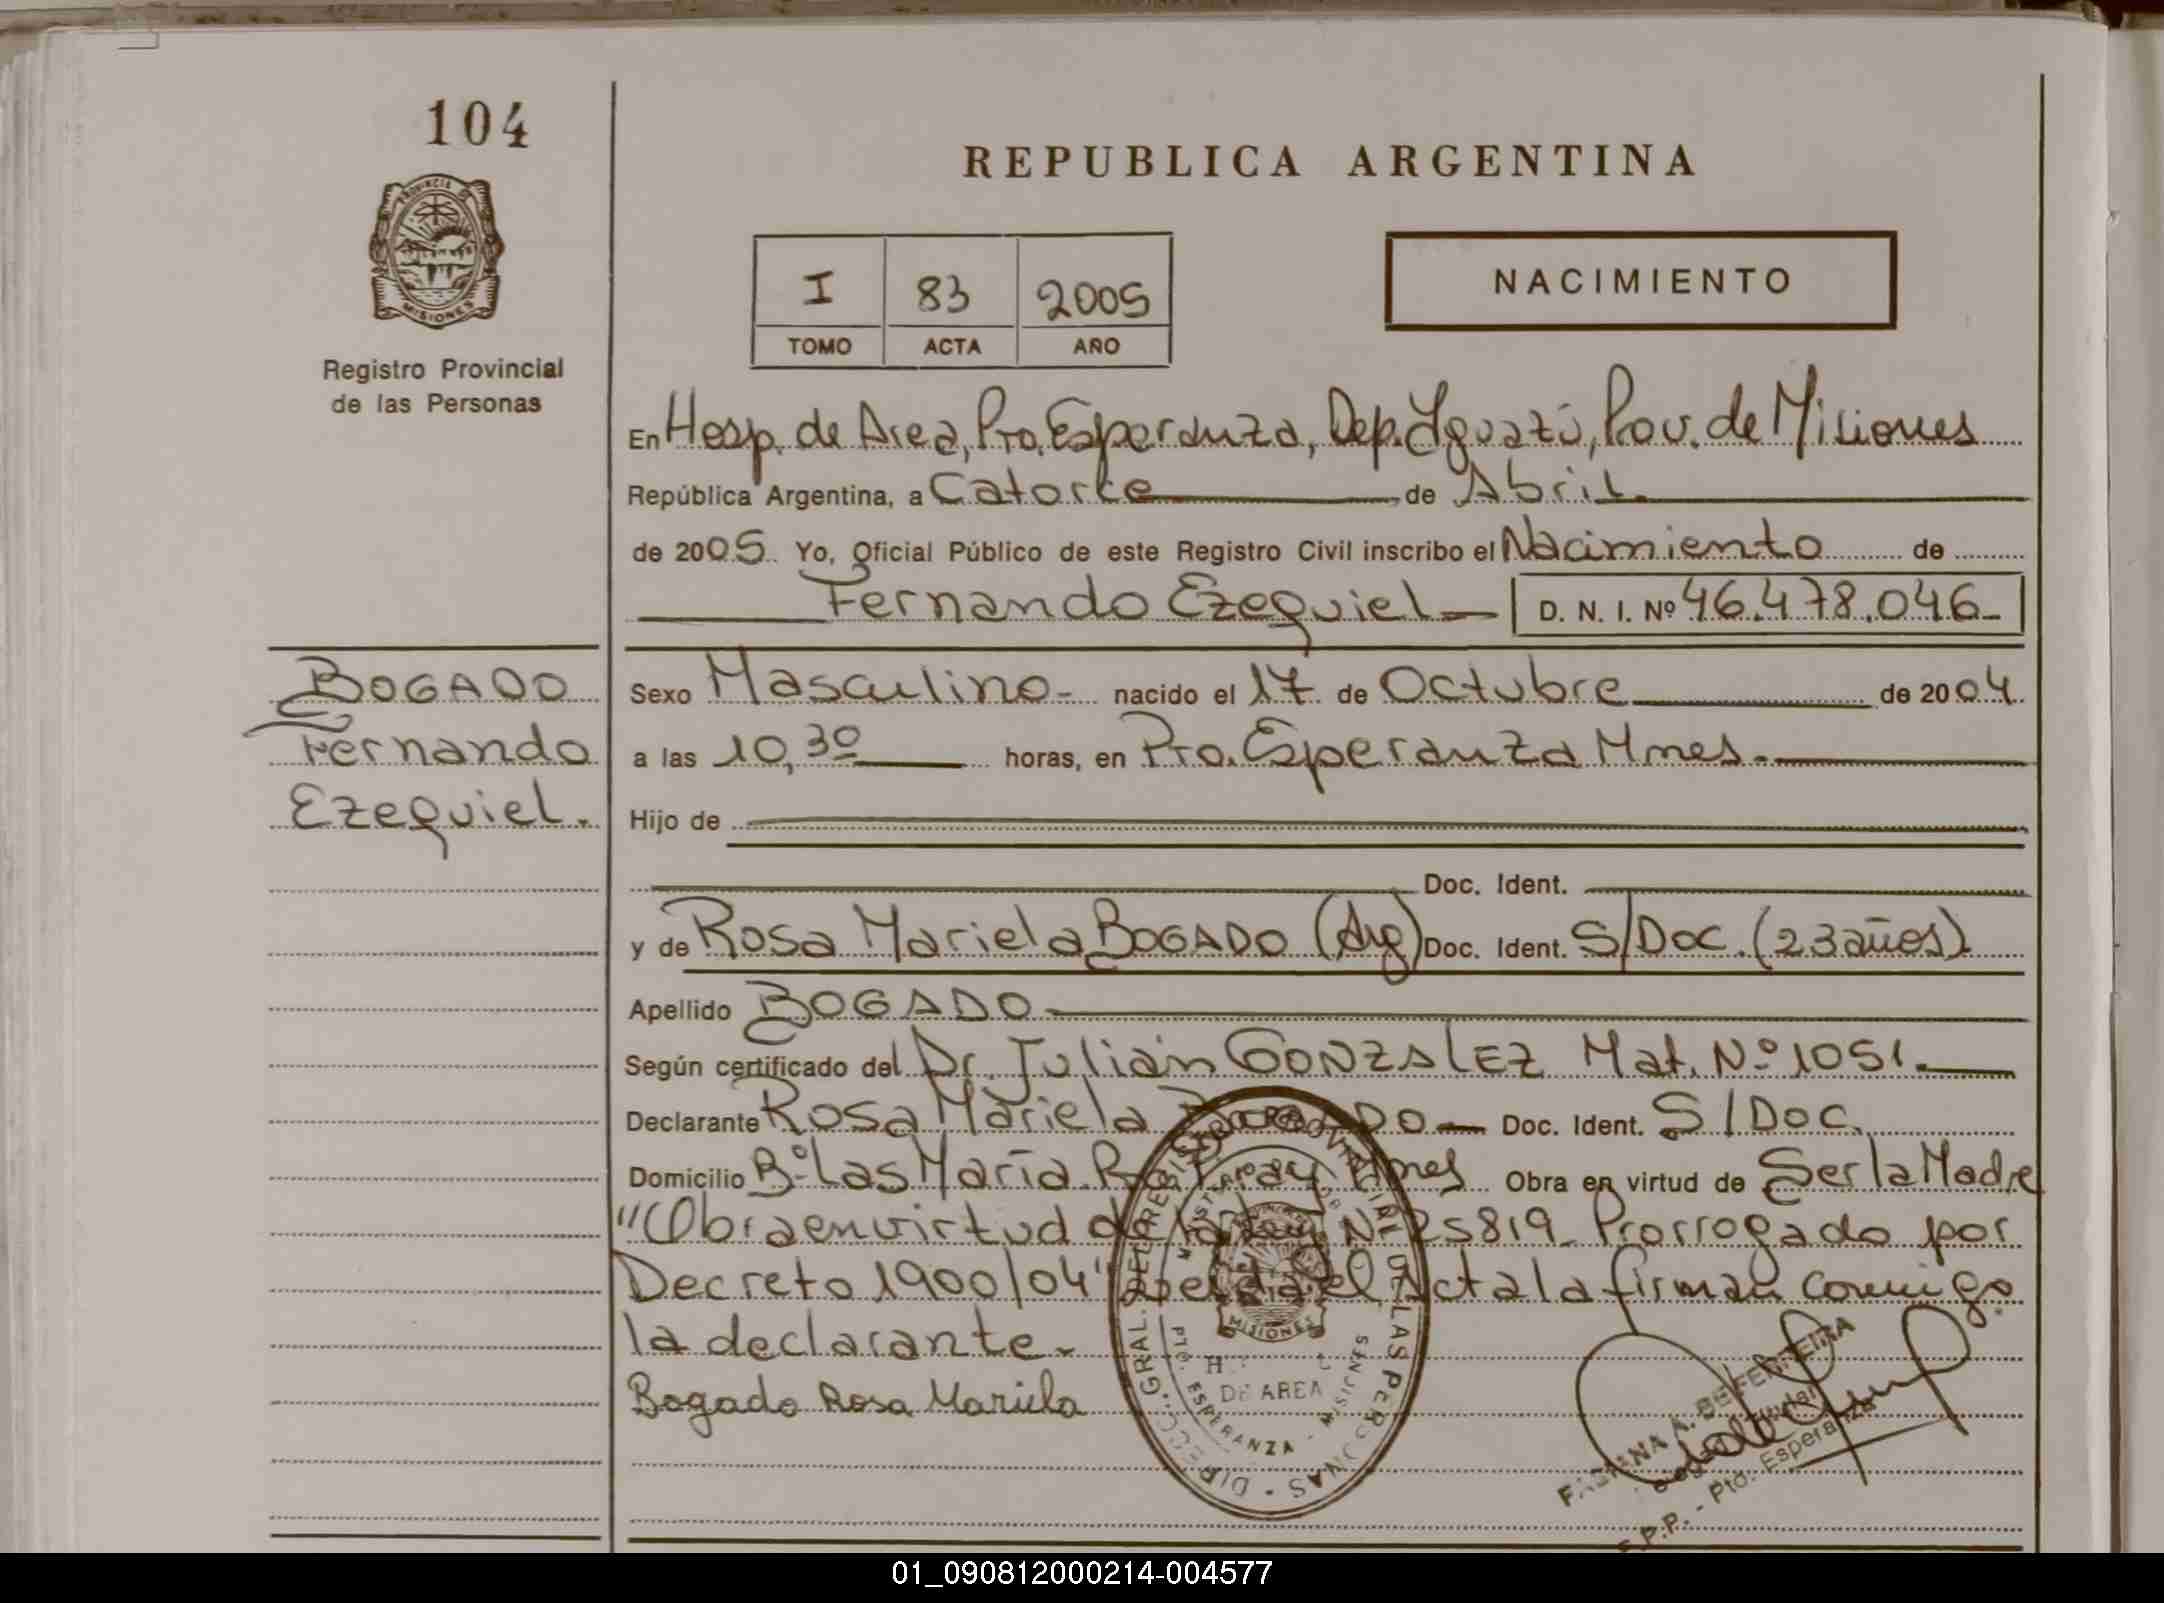 104
PROVINCIA DE
MISIONES
Registro Provincial
de las Personas
REPUBLICA ARGENTINA
I 83 2005
TOMO ACTA AÑO
NACIMIENTO
En Hosp. de Area, Pto. Esperanza, Dep. Iguazú, Pov. de Misiones
República Argentina, a Catorce de Abril
de 2005 Yo, Oficial Público de este Registro Civil inscribo el Nacimiento de
Fernando Ezequiel D. N. I. Nº 46.478.046
BOGADO
Fernando
Ezequiel.
Sexo Masculino nacido el 17 de Octubre de 2004
a las 10,30 horas, en Pto. Esperanza Mnes.
Hijo de
Doc. Ident.
y de Rosa Mariela BOGADO (Arg) Doc. Ident. S/Doc. (23 años)
Apellido BOGADO
Según certificado del Dr. Julián GONZALEZ Mat. Nº 1051.
Declarante Rosa Mariela BOGADO Doc. Ident. S/Doc.
Domicilio Bº Las María Mnes Obra en virtud de Ser la Madre
"Obra en virtud de la Ley Nº 25819 Prorrogado por
Decreto 1900/04" Leída el Acta la firman conmigo
la declarante.
Bogado Rosa Mariela
DIRECC. GRAL. DEL REGISTRO PROVINCIAL DE LAS PERSONAS
MISIONES
DE AREA
PTO. ESPERANZA - MISIONES
FABIANA A. DE FERREIRA
Titular
R.P.P. - Pto. Esperanza
01_090812000214-004577